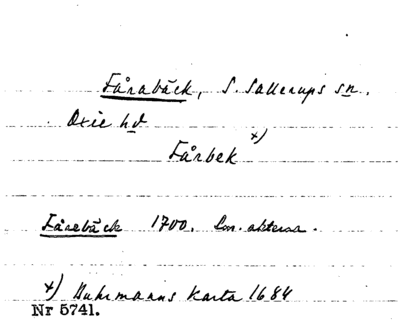 Fårabäck, S. Sallerups sn.
Oxie hd
Fårbek x)
Fårebäck 1700. Lm. akterna.
x) Buhrmanns Karta 1684
Nr 5741.